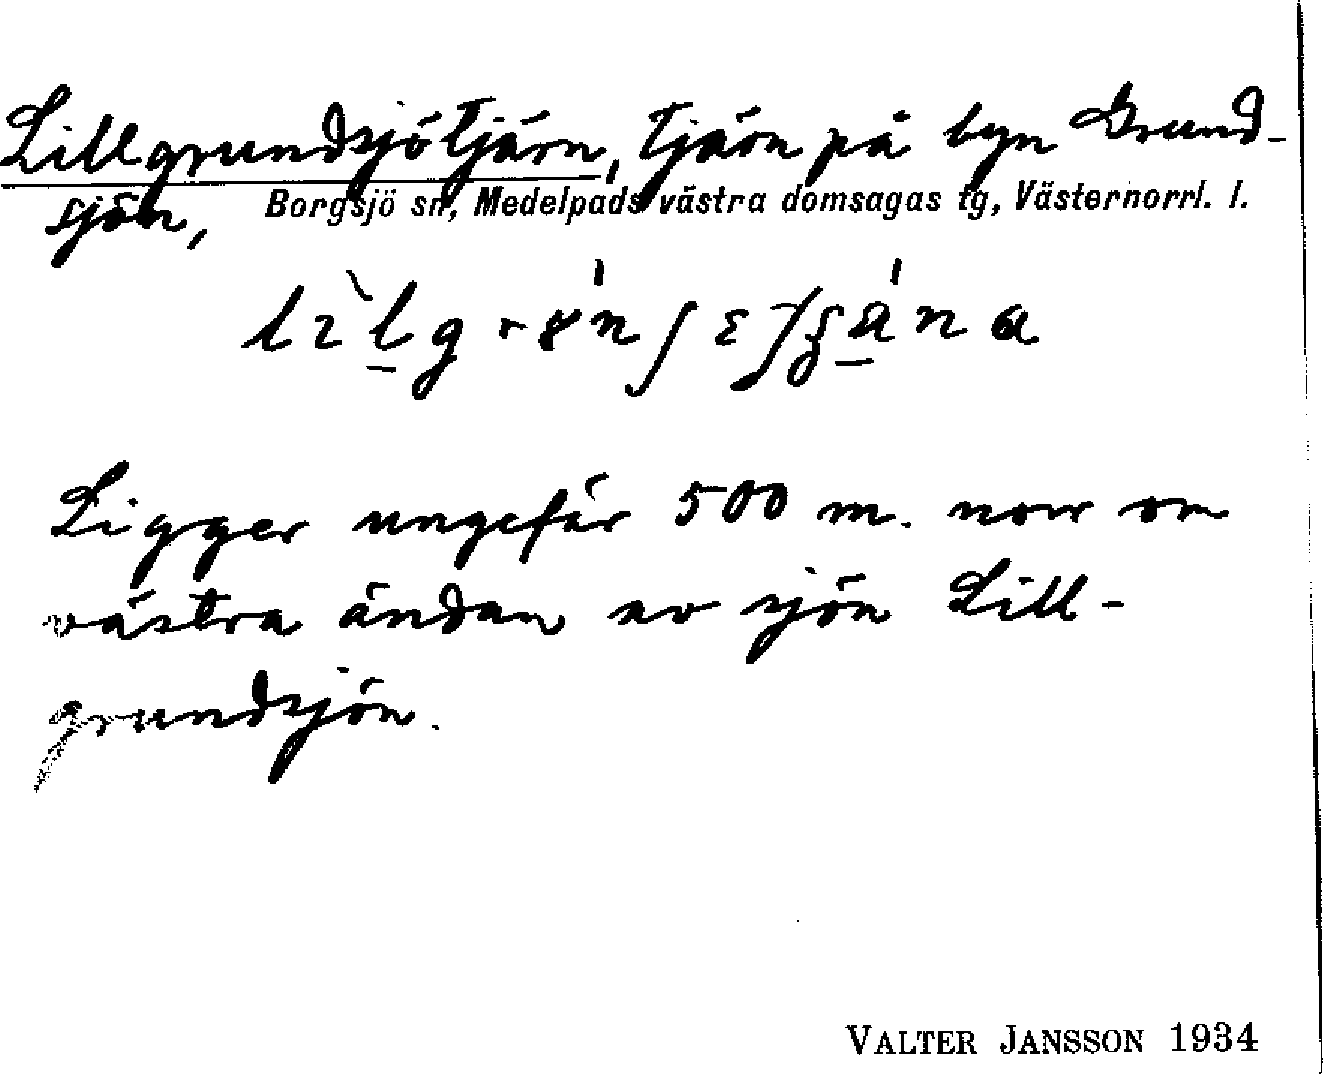 Lillgrundsjötjärn, tjärn på byn Grund-
sjön, Borgsjö sn, Medelpads västra domsagas tg, Västernorrl. l.
Ligger ungefär 500 m. norr om
västra ändan av sjön Lill-
grundsjön.
VALTER JANSSON 1934